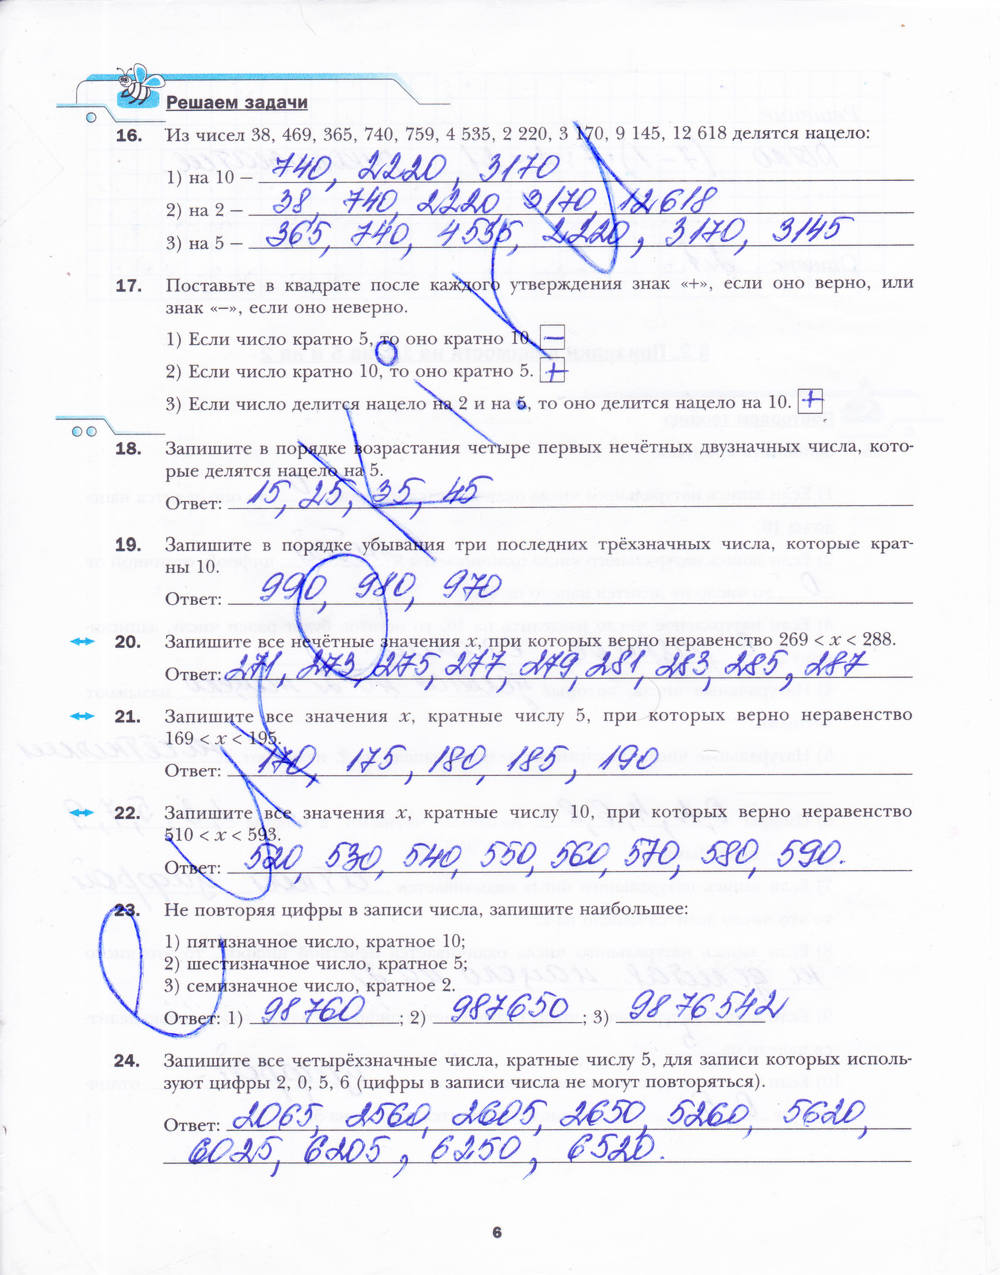 Решаем задачи
16. Из чисел 38, 469, 365, 740, 759, 4 535, 2 220, 3 170, 9 145, 12 618 делятся нацело:
1) на 10 – 740, 2220, 3170
2) на 2 – 38, 740, 2220, 3170, 12618
3) на 5 – 365, 740, 4535, 2220, 3170, 3145
17. Поставьте в квадрате после каждого утверждения знак «+», если оно верно, или
знак «–», если оно неверно.
1) Если число кратно 5, то оно кратно 10. –
2) Если число кратно 10, то оно кратно 5. +
3) Если число делится нацело на 2 и на 5, то оно делится нацело на 10. +
18. Запишите в порядке возрастания четыре первых нечётных двузначных числа, кото-
рые делятся нацело на 5.
Ответ: 15, 25, 35, 45
19. Запишите в порядке убывания три последних трёхзначных числа, которые крат-
ны 10.
Ответ: 990, 980, 970
20. Запишите все нечётные значения x, при которых верно неравенство 269 < x < 288.
Ответ: 271, 273, 275, 277, 279, 281, 283, 285, 287
21. Запишите все значения x, кратные числу 5, при которых верно неравенство
169 < x < 195.
Ответ: 170, 175, 180, 185, 190
22. Запишите все значения x, кратные числу 10, при которых верно неравенство
510 < x < 593.
Ответ: 520, 530, 540, 550, 560, 570, 580, 590.
23. Не повторяя цифры в записи числа, запишите наибольшее:
1) пятизначное число, кратное 10;
2) шестизначное число, кратное 5;
3) семизначное число, кратное 2.
Ответ: 1) 98760 ; 2) 987650 ; 3) 9876542
24. Запишите все четырёхзначные числа, кратные числу 5, для записи которых исполь-
зуют цифры 2, 0, 5, 6 (цифры в записи числа не могут повторяться).
Ответ: 2065, 2560, 2605, 2650, 5260, 5620,
6025, 6205, 6250, 6520.
6